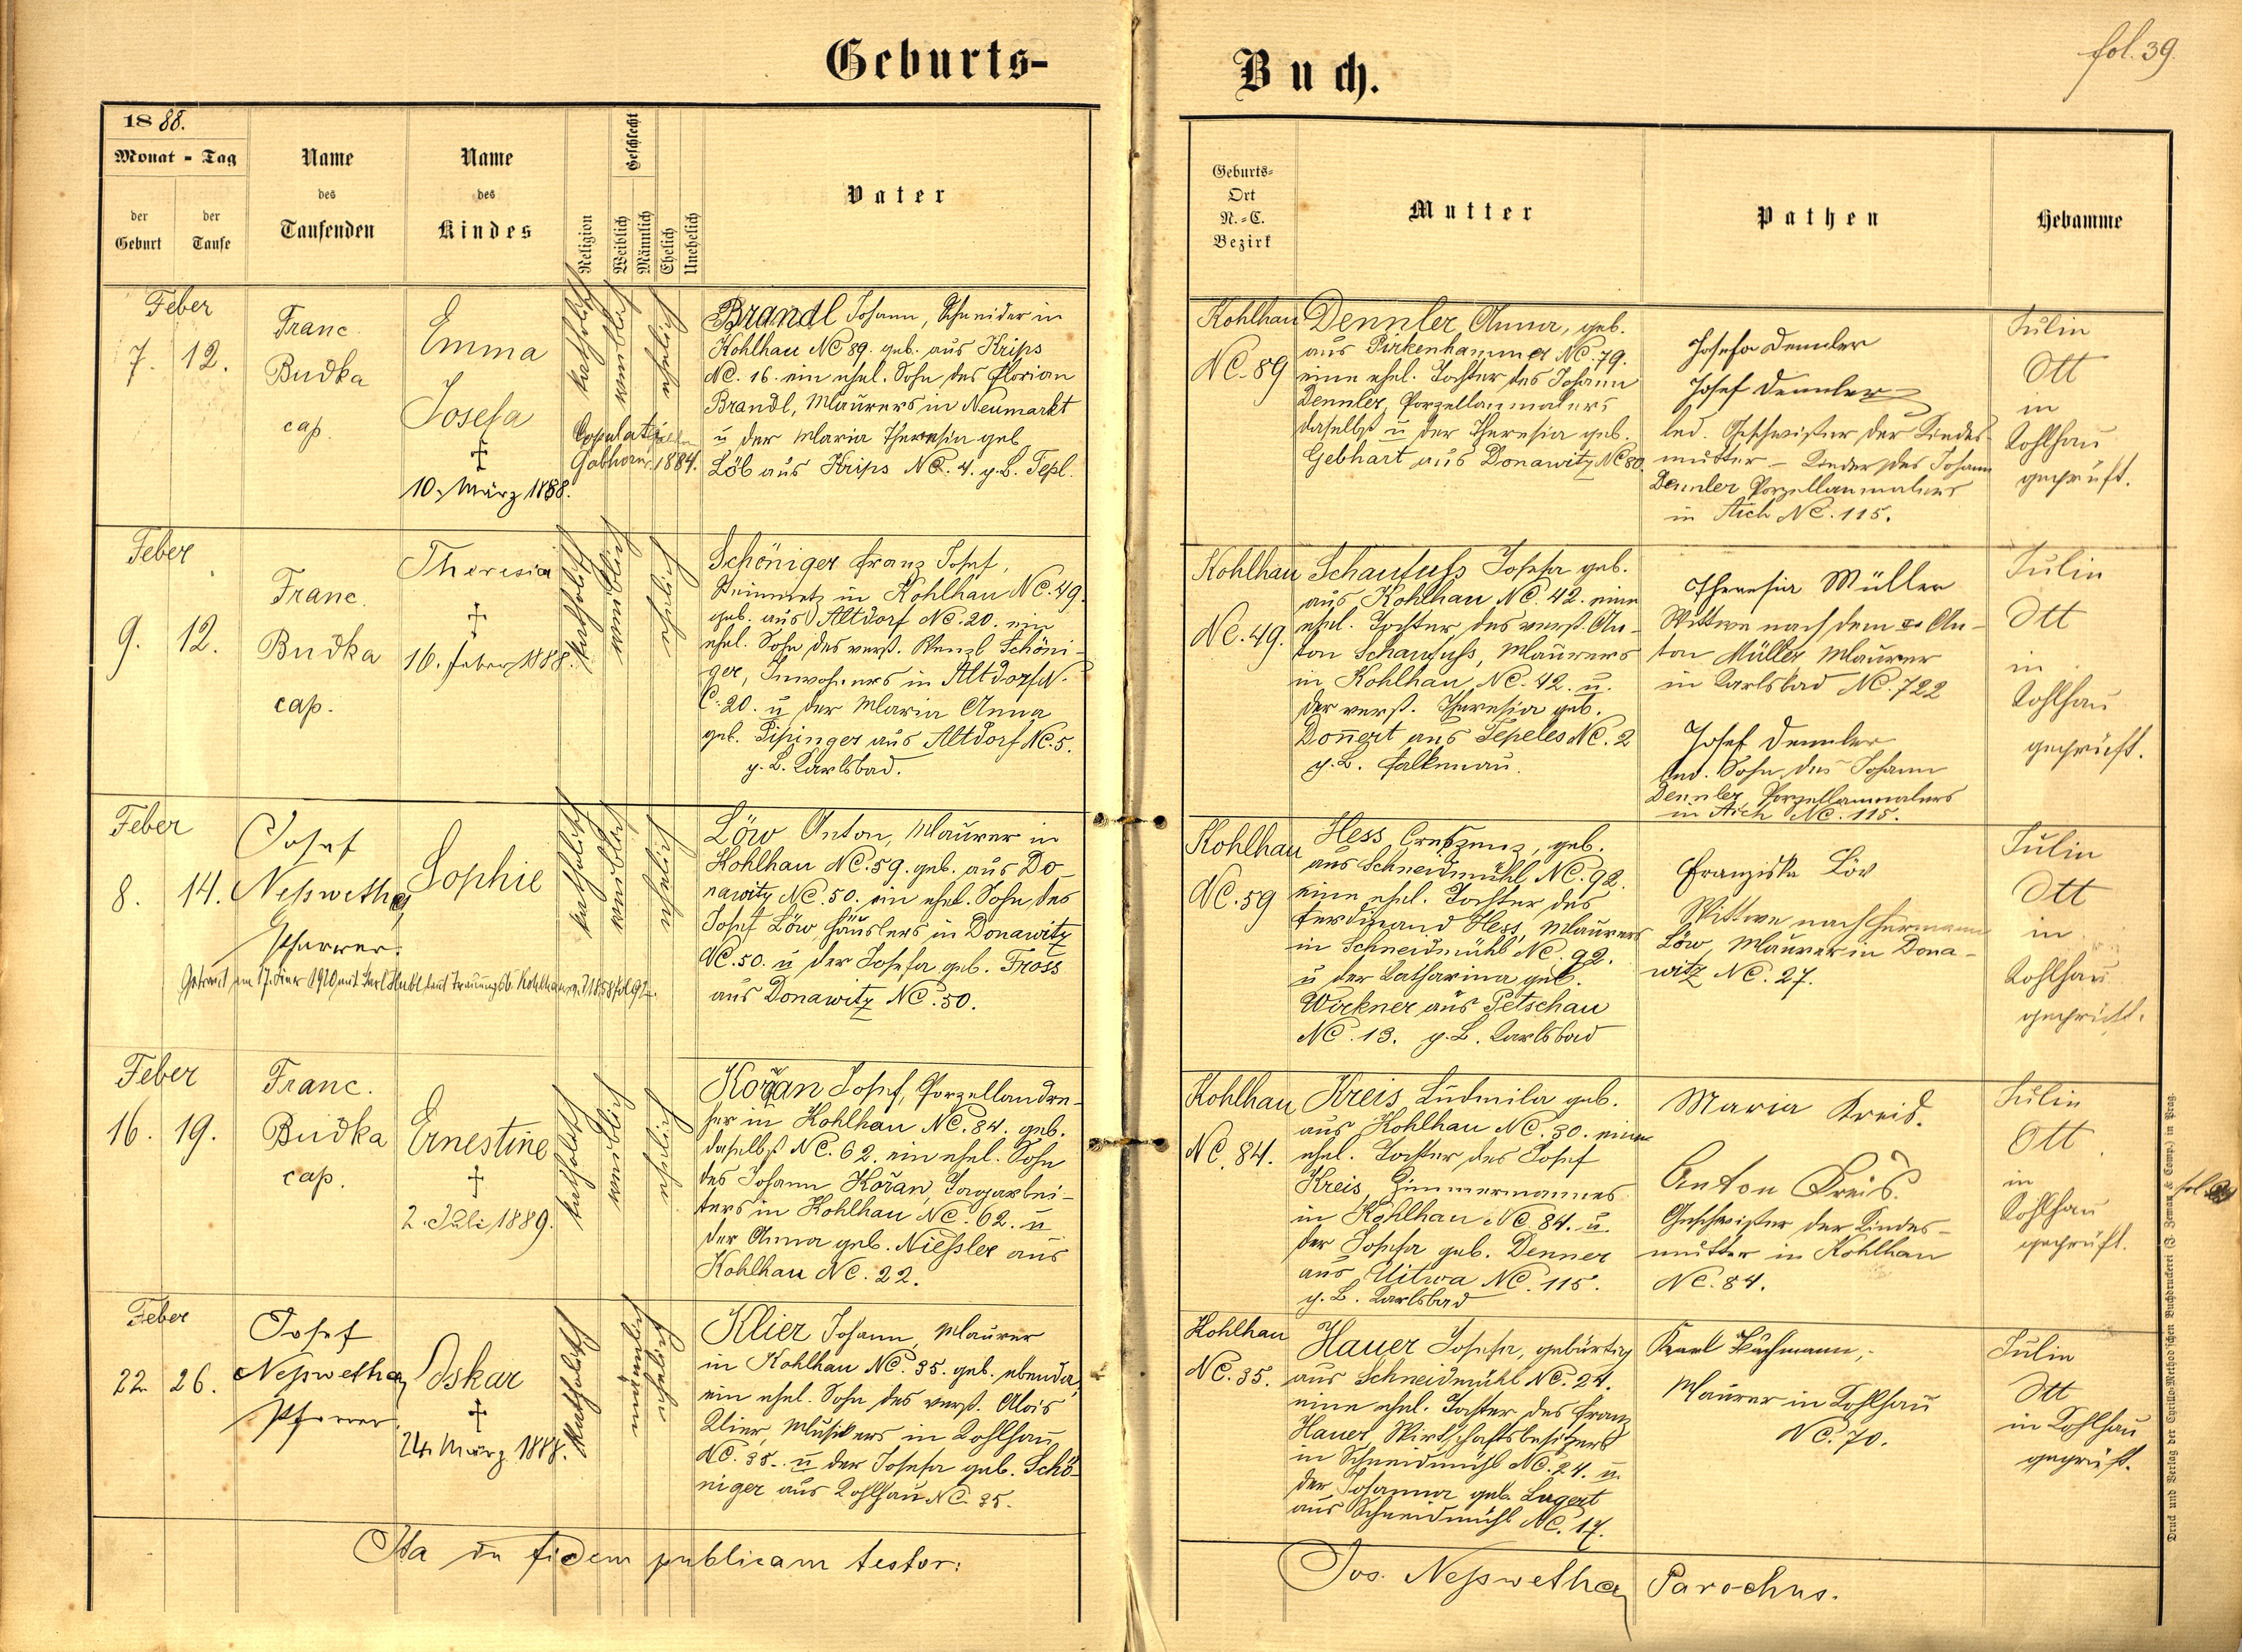 Geburts-
Buch.
fol. 39.
1888.
Monat - Tag
der Geburt
der Taufe
Name des Taufenden
Name des Kindes
Religion
Geschlecht
Weiblich
Männlich
Ehelich
Unehelich
Vater
Geburts-Ort N.-C. Bezirk
Mutter
Pathen
Hebamme
Feber
7. 12.
Franc
Budka
cap.
Emma
Josefa
†
10. März 1888.
katholisch
weiblich
ehelich
Copulati
Gabhorn 1884.
Brandl Johann, Schneider in
Kohlhau NC 89. geb. aus Krips
NC. 16. ein ehel. Sohn des Florian
Brandl, Maurers in Neumarkt
u der Maria Theresia geb
Löb aus Krips NC. 4. g. B. Tepl.
Kohlhau
NC. 89
Dennler Anna, geb.
aus Pirkenhammer NC. 79.
eine ehel. Tochter des Johann
Dennler, Porzellanmalers
daselbst u der Theresia geb.
Gebhart aus Donawitz NC 80.
Josefa Dennler
Josef Dennler
led. Geschwister der Kindes-
mutter - Kinder des Johann
Dennler Porzellanmalers
in Aich NC. 115.
Julin
Ott
in
Kohlhau
geprüft.
Feber
9. 12.
Franc.
Budka
cap.
Theresia
†
16. Feber 1888.
katholisch
weiblich
ehelich
Schöniger Franz Josef,
Steinmetz in Kohlhau NC. 49.
geb. aus Altdorf NC. 20. ein
ehel. Sohn des verst. Wenzl Schöni-
ger, Inwohners in Altdorf N.
C. 20. u der Maria Anna
geb. Pisinger aus Altdorf NC. 5.
g. B. Karlsbad.
Kohlhau
NC. 49.
Schaufuß Josefa geb.
aus Kohlhau NC. 42. eine
ehel. Tochter des verst. An-
ton Schaufuß, Maurers
in Kohlhau, NC. 42. u.
der verst. Theresia geb.
Doñert aus Tepeles NC. 2
g. B. Falkenau.
Theresia Müller
Wittwe nach dem An-
ton Müller, Maurer
in Karlsbad NC. 722
Josef Dennler
led. Sohn des Johann
Dennler Porzellanmalers
in Aich NC. 115.
Julin
Ott
in
Kohlhau
geprüft.
Feber
8. 14.
Josef
Neßwetha,
Pfarrer.
Sophie
katholisch
weiblich
ehelich
Getraut am 17. 1920 mit Karl laut Trauungsb. Kohlhau
Löw Anton, Maurer in
Kohlhau NC. 59. geb. aus Do-
nawitz NC. 50. ein ehel. Sohn des
Josef Löw Häuslers in Donawitz
NC. 50. u der Josefa geb. Fross
aus Donawitz NC. 50.
Kohlhau
NC. 59
Hess Creszenz, geb.
aus Schneidmühl NC. 92.
eine ehel. Tochter des
Ferdinand Hess, Maurers
in Schneidmühl NC. 92.
u der Katharina geb.
Wirkner aus Petschau
NC. 13. g. B. Karlsbad
Franziska Löw
Wittwe nach Hermann
Löw, Maurer in Dona-
witz NC. 27.
Julin
Ott
in
Kohlhau
geprüft.
Feber
16. 19.
Franc.
Budka
cap.
Ernestine
†
2. Juli 1889.
katholisch
weiblich
ehelich
Kořan Josef, Porzellandre-
her in Kohlhau NC. 84. geb.
daselbst NC. 62. ein ehel. Sohn
des Johann Kořan, Tagarbei-
ters in Kohlhau NC. 62. u
der Anna geb. Nießler aus
Kohlhau NC. 22.
Kohlhau
NC. 84.
Kreis Ludmila geb.
aus Kohlhau NC. 30. eine
ehel. Tochter des Josef
Kreis, Zimmermannes
in Kohlhau NC. 84. u.
der Josefa geb. Denner
aus Uitwa NC. 115.
g. B. Karlsbad
Maria Kreis.
Anton Kreis.
Geschwister der Kindes-
mutter in Kohlhau
NC. 84.
Julin
Ott
in
Kohlhau
geprüft.
Feber
22. 26.
Josef
Neßwetha,
Pfarrer.
Oskar
†
24. März 1888.
katholisch
männlich
ehelich
Klier Johann, Maurer
in Kohlhau NC. 35. geb. ebenda,
ein ehel. Sohn des verst. Alois
Klier, Musikers in Kohlhau
NC. 35. u der Josefa geb. Schö-
niger aus Kohlhau NC. 35.
Kohlhau
NC. 35.
Hauer Josefa, gebürtig
aus Schneidmühl NC. 24.
eine ehel. Tochter des Franz
Hauer, Wirtschaftsbesitzers
in Schneidmühl NC. 24. u.
der Johanna geb. Lugert
aus Schneidmühl NC. 17.
Karl Bachmann,
Maurer in Kohlhau
NC. 70.
Julin
Ott
in Kohlhau
geprüft.
Ita in fidem publicam testor:
Jos. Neßwetha, Parochus.
Druck und Verlag der Cyrillo-Method'schen Buchdruckerei (J. Zeman & Comp.) in Prag.